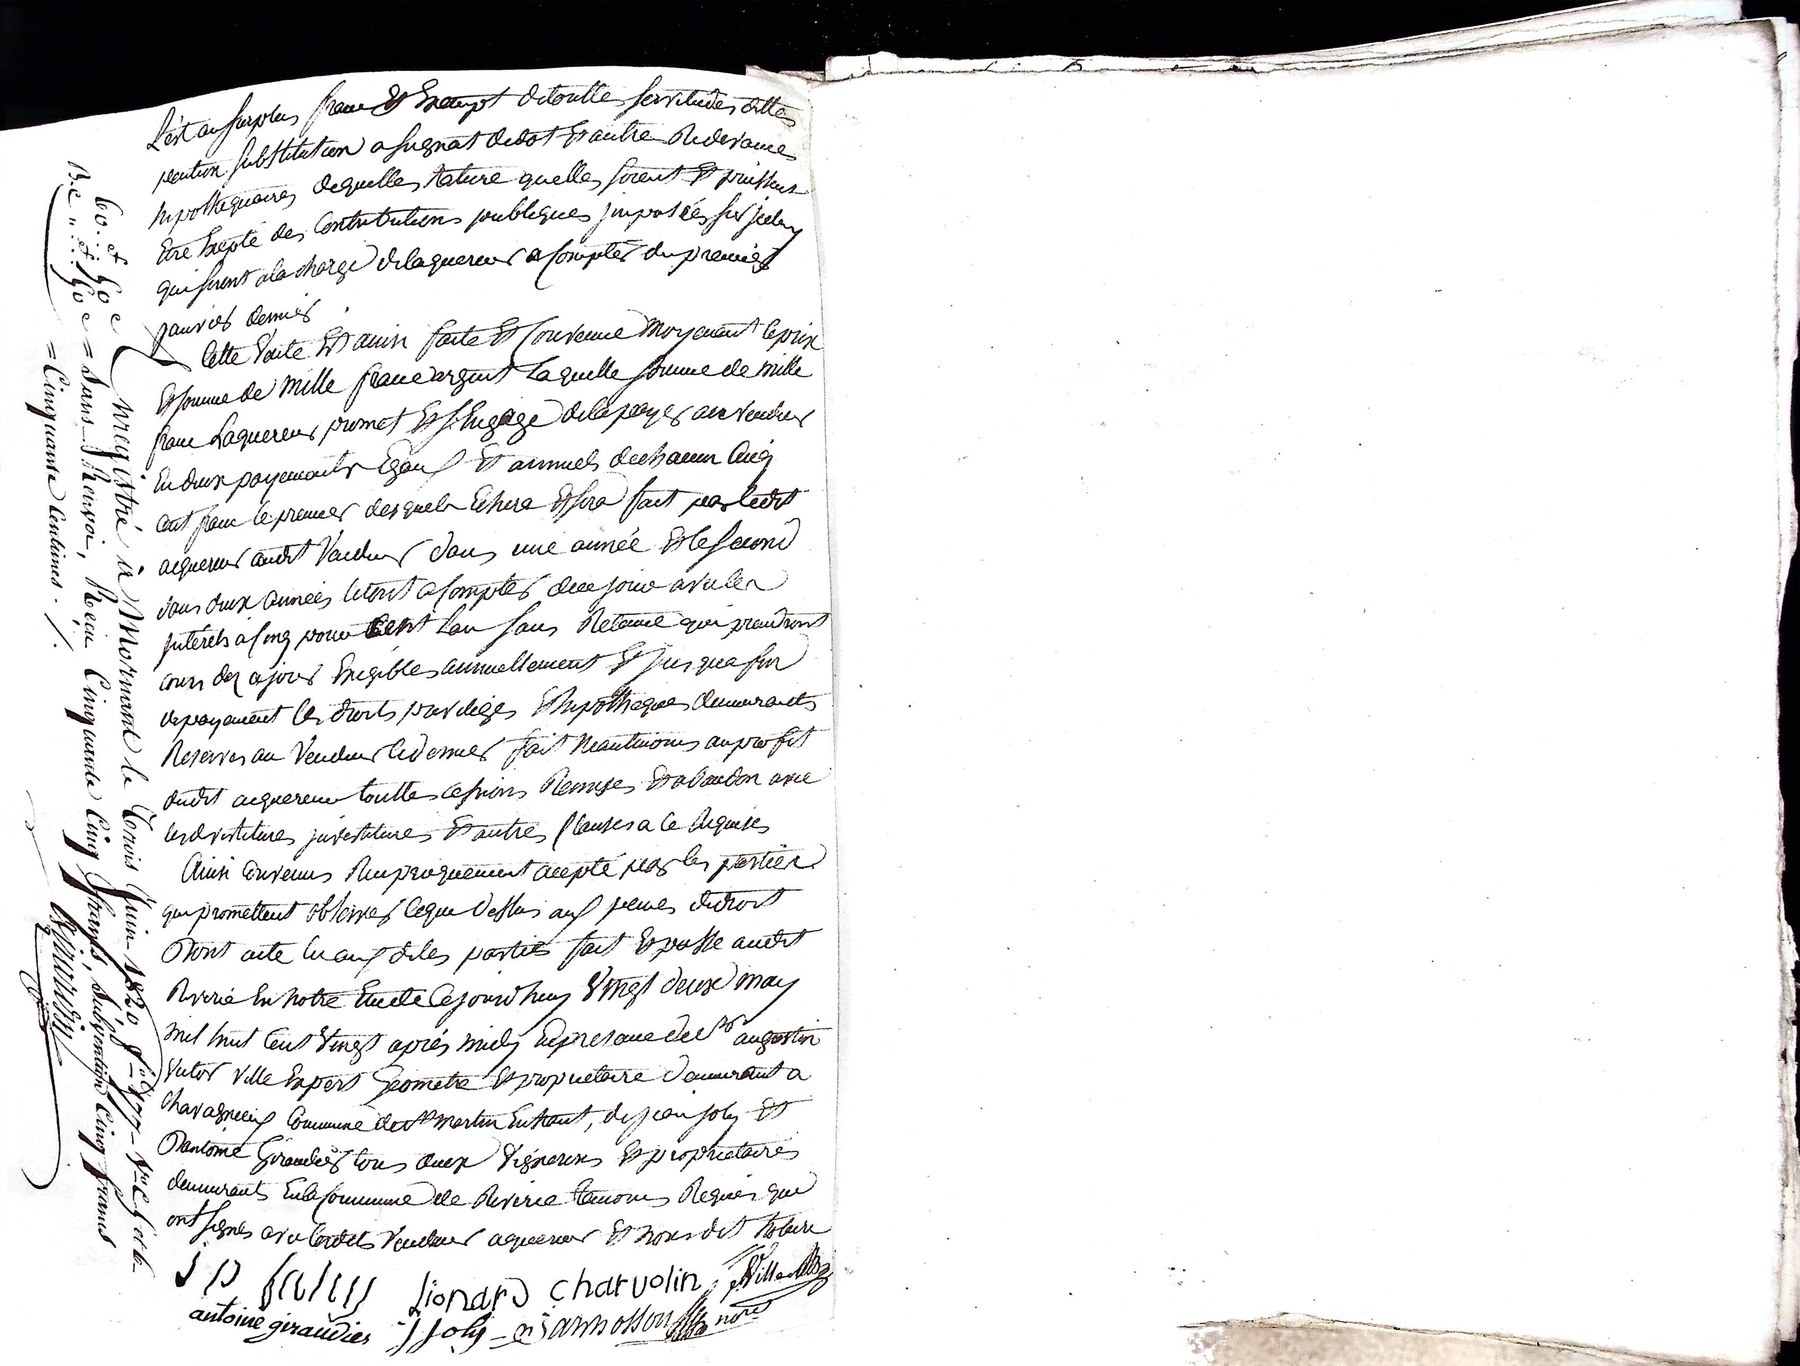 L'est au surplus franc Et Exempt de toutte servitudes dettes
pention substitution assignat de dot Et autre Redevances
hypothequaires de quelles Nature quelles soient Et puissent
Etre Exepté des Contributions publiques jmposées sur jcelui
qui seront a la charge de laquereur a Compter du premier
janvier dernier
Cette Vante Est ainsi faite Et Convenue Moyenant le prix
Et somme de Mille franc argent Laquelle somme de Mille
franc Laquereur promet Et s'Engage de la payer au vendeur
En deux payements Egaux Et annuels de chacun Cinq
cent franc le premier desquels Echera Et sera fait par ledit
aquereur audit Vandeur dans une année Et le second
dans deux années le tout a Compter de ce jour avec les
jnterets a Cinq pour Cent L'an sans Retenue qui prandront
cours dez ce jour Exigibles annuellement Et jusqua fin
de payement les droits privileges Et hypotheques demeurants
Reservés au Vendeur ce dernier fait Neantmoins au profit
dudit aquereur touttes cessions Remises Et abandon avec
les devetitures jnvestitures Et autres Clauses a ce Requises
Ainsi Convenus Reciproquement accepté par les parties
qui promettent observer ce que dessus aux peines de droit
Dont acte lu aux dites parties fait Et passé audit
Riverie En Notre Etude Cejourd'huy Vingt deux may
mil huit Cent Vingt aprés midy En presence de Sr augustin
Victor Ville Expert Géometre Et proprietaire demeurant a
Chavagneux Commune de St martin En haut, de jean joly Et
D'antoine Giraudier tous deux Vignerons Et proprietaires
demeurants En la Commune de Riverie temoins Requis qui
ont signés avec lesdits Vendeur aquereur Et Nous dit Notaire
Lionard Charvolin Ville
antoine giraudier j joly Jannosson nore
Enregistré à Mornant le trois Juin 1820 fo 177 Vo C
60. et
= Sans Renvoi, Reçu Cinquante Cinq francs, Subvention Cinq francs
= Cinquante Centimes ./.